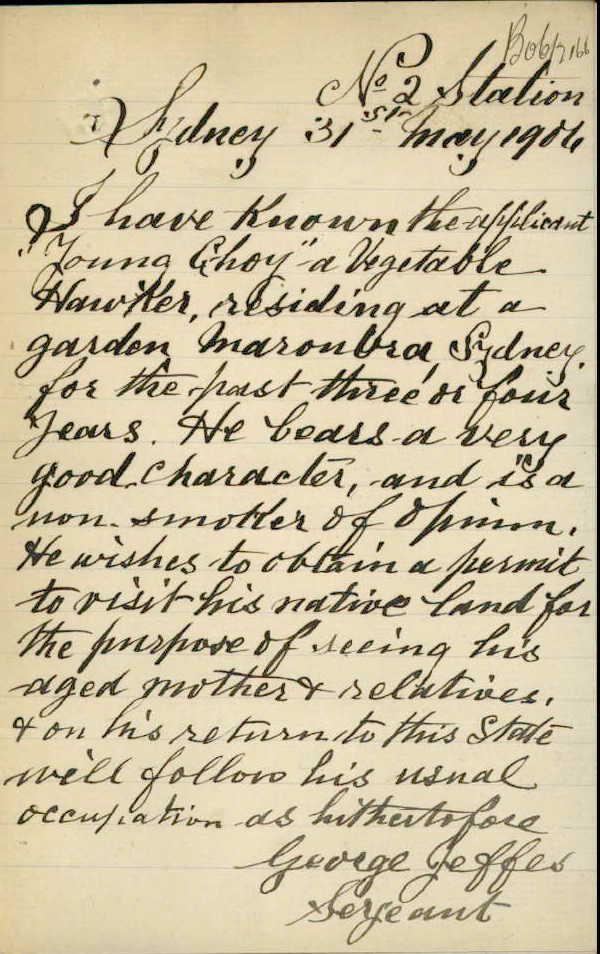 No 2 Station
Sydney 31st May 1904
I have known the applicant
"Young Choy" a Vegetable
Hawker, residing at a
garden Maroubra, Sydney.
for the past three or four
years. He bears a very
good character, and is a
non-smoker of Opium.
He wishes to obtain a permit
to visit his native land for
the purpose of seeing his
aged mother & relatives,
& on his return to this State
will follow his usual
occupation as hithertofore
George Jeffes
Sergeant